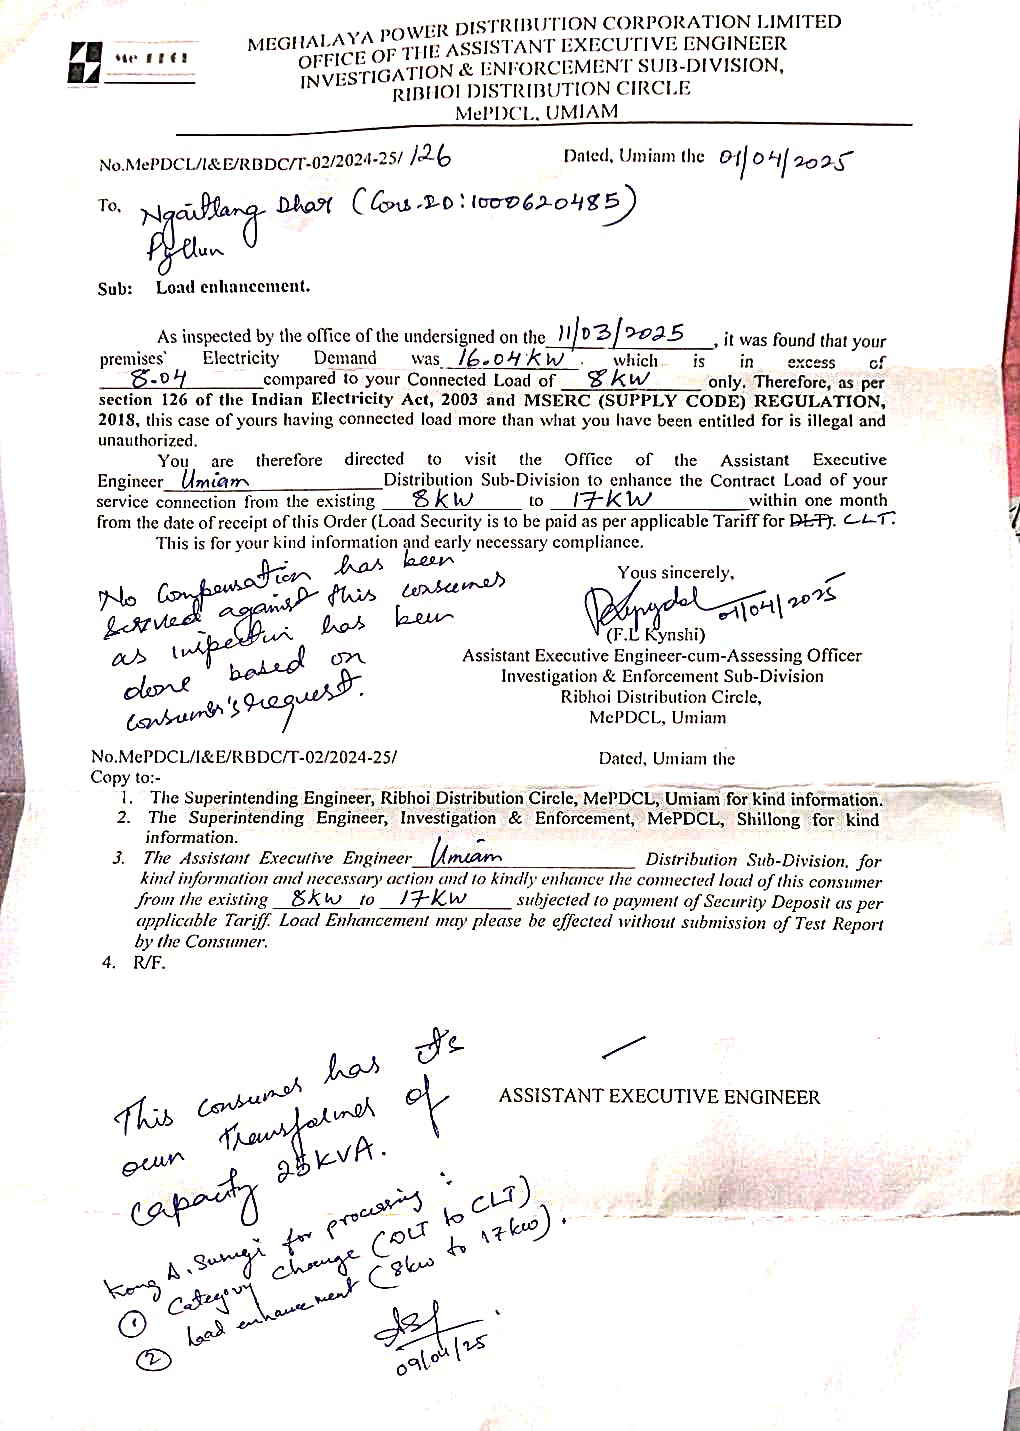 MEGHALAYA POWER DISTRIBUTION CORPORATION LIMITED
OFFICE OF THE ASSISTANT EXECUTIVE ENGINEER
INVESTIGATION & ENFORCEMENT SUB-DIVISION,
RIBHOI DISTRIBUTION CIRCLE
MePDCL, UMIAM
No.MePDCL/I&E/RBDC/T-02/2024-25/ 126 Dated, Umiam the 01/04/2025
To, Ngaitlang Dhar (Cons.ID:1000620485)
Pyllun
Sub: Load enhancement.
As inspected by the office of the undersigned on the 11/03/2025, it was found that your
premises' Electricity Demand was 16.04KW. which is in excess of
8.04 compared to your Connected Load of 8KW only. Therefore, as per
section 126 of the Indian Electricity Act, 2003 and MSERC (SUPPLY CODE) REGULATION,
2018, this case of yours having connected load more than what you have been entitled for is illegal and
unauthorized.
You are therefore directed to visit the Office of the Assistant Executive
Engineer Umiam Distribution Sub-Division to enhance the Contract Load of your
service connection from the existing 8KW to 17KW within one month
from the date of receipt of this Order (Load Security is to be paid as per applicable Tariff for DLT). CLT.
This is for your kind information and early necessary compliance.
No Compensation has been
served against this consumer
as inspection has been
done based on
consumer's request.
Yous sincerely,
01/04/2025
(F.L Kynshi)
Assistant Executive Engineer-cum-Assessing Officer
Investigation & Enforcement Sub-Division
Ribhoi Distribution Circle,
MePDCL, Umiam
No.MePDCL/I&E/RBDC/T-02/2024-25/ Dated, Umiam the
Copy to:-
1. The Superintending Engineer, Ribhoi Distribution Circle, MePDCL, Umiam for kind information.
2. The Superintending Engineer, Investigation & Enforcement, MePDCL, Shillong for kind
information.
3. The Assistant Executive Engineer Umiam Distribution Sub-Division, for
kind information and necessary action and to kindly enhance the connected load of this consumer
from the existing 8KW to 17KW subjected to payment of Security Deposit as per
applicable Tariff. Load Enhancement may please be effected without submission of Test Report
by the Consumer.
4. R/F.
ASSISTANT EXECUTIVE ENGINEER
This consumer has its
own transformer of
capacity 25KVA.
Kong A. for processing :
① Category change (DLT to CLT)
② Load enhancement (8kw to 17kw).
09/04/25